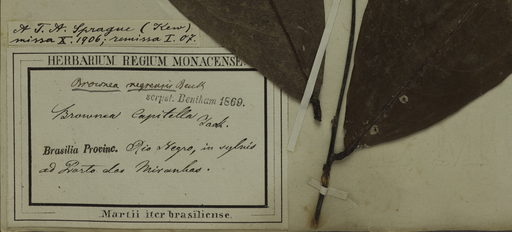 A T. A. Sprague (Kew)
missa X. 1906; remissa I. 07.
HERBARIUM REGIUM MONACENSE
Brownea negrensis Benth
script. Bentham 1869.
Brownea Capitella
Brasilia Provinc. Rio Negro, in sylvis
ad Porto dos Miranhas.
Martii iter brasiliense.